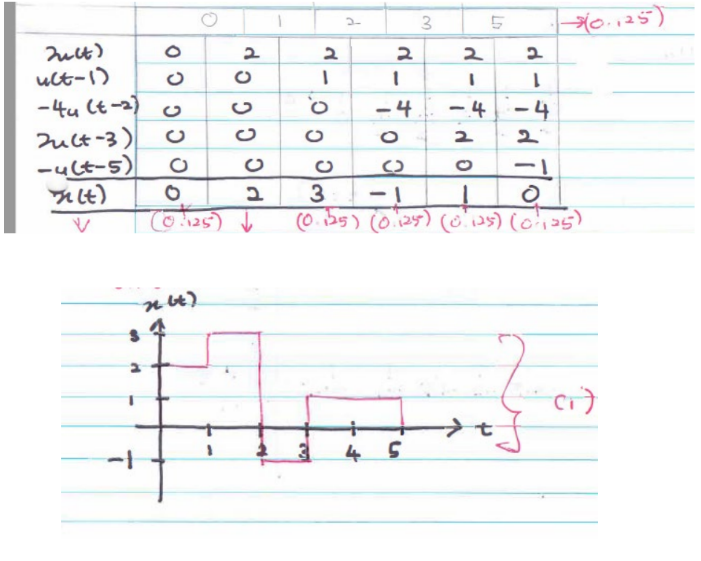 0 1 2 3 5 →(0.125)
2u(t) 0 2 2 2 2 2
u(t-1) 0 0 1 1 1 1
-4u(t-2) 0 0 0 -4 -4 -4
2u(t-3) 0 0 0 0 2 2
-u(t-5) 0 0 0 0 0 -1
x(t) 0 2 3 -1 1 0
(0.125) ↓ (0.125) (0.125) (0.125) (0.125)
x(t)
3
2
1
(1)
t
1 2 3 4 5
-1